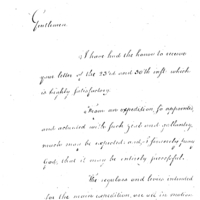 Gentlemen
I have had the honor to receive
your letter of the 23rd and 30th ult. which
is highly satisfactory.
From an expedition so
and with such zeal and
much may be expected, and I sincerely pray
God, that it may be entirely successful.
The captains and crews intended
for the main expedition, are all in motion